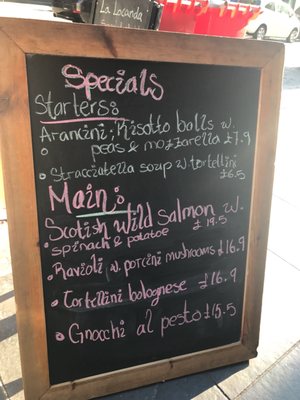 La Locanda
Specials
Starters:
Arancini; Risotto balls w.
peas & mozzarella £7.9
Stracciatella soup w. tortellini
£6.5
Main:
Scotish wild salmon w.
spinach & potatoe £19.5
Ravioli w. porcini mushrooms £16.9
Tortellini bolognese £16.9
Gnocchi al pesto £15.5